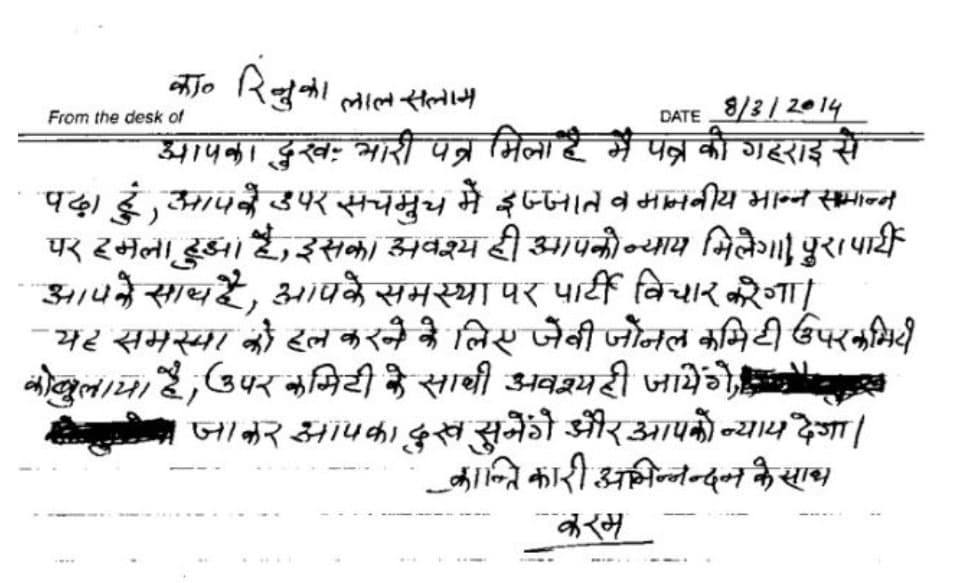 का० रिनुका लाल सलाम
From the desk of DATE 8/3/2014
आपका दुखः भारी पत्र मिला है मै पत्र को गहराई से
पढ़ा हुं, आपके उपर सचमुच मे इज्जात व मानवीय मान्न समान्न
पर हमला हुआ है, इसका अवश्य ही आपको न्याय मिलेगा। पुरा पार्टी
आपके साथ है, आपके समस्या पर पार्टी विचार करेगा।
यह समस्या को हल करने के लिए जेवी जोनल कमिटी उपर कमिटी
को बुलाया है, उपर कमिटी के साथी अवश्य ही जायेंगे,
जाकर आपका दुख सुनेंगे और आपको न्याय देगा।
क्रान्तिकारी अभिन्नन्दन के साथ
करम